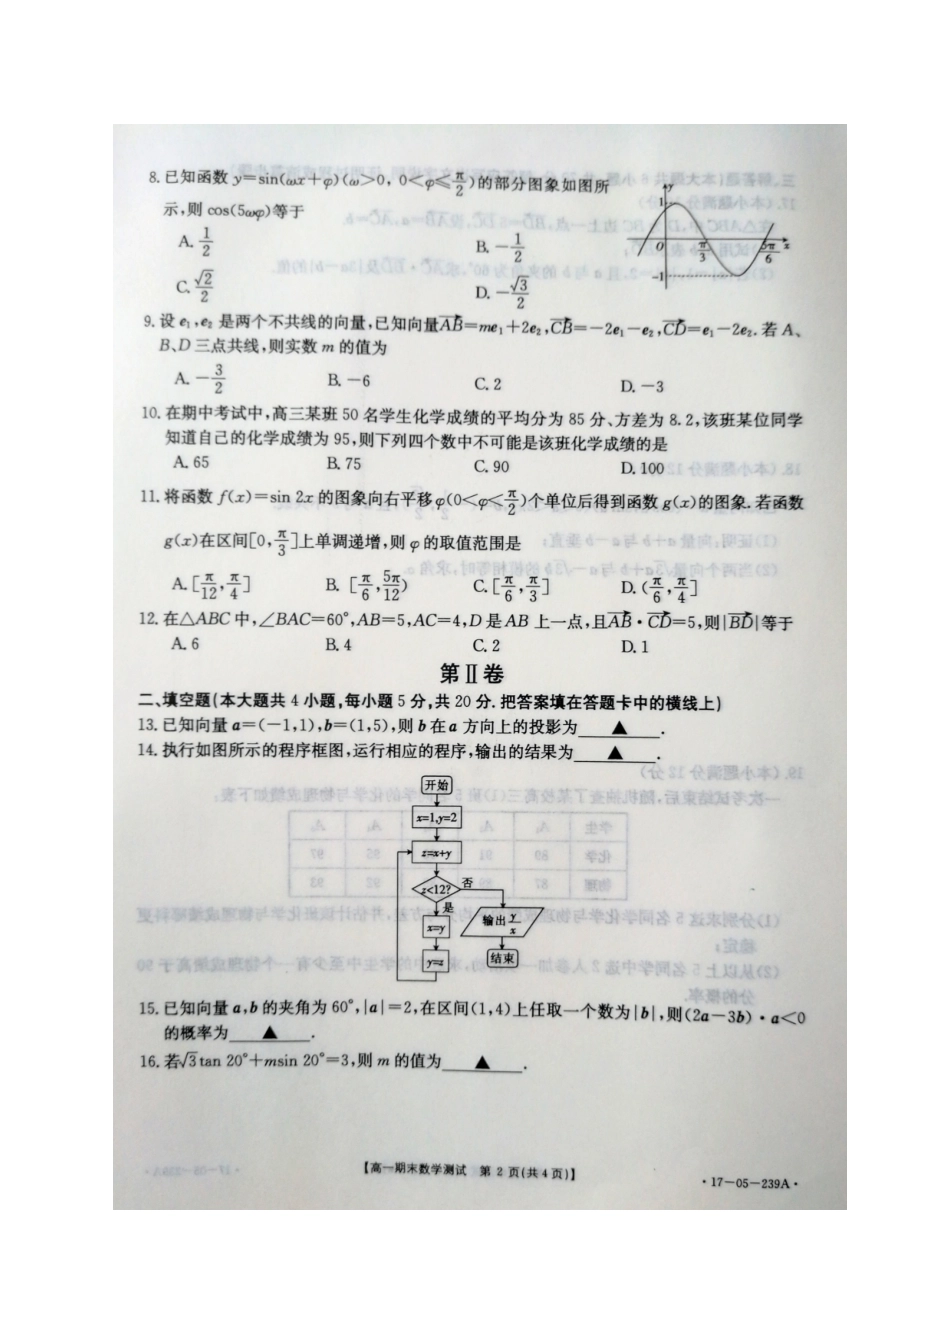 8. 已知函数 y=sin(ωx+φ)(ω>0, 0<φ≤π/2)的部分图象如图所
示,则 cos(5ωφ)等于
y
1
0
π/3
5π/6
x
-1
A. 1/2
B. -1/2
C. √2/2
D. -√3/2
9. 设 e₁,e₂ 是两个不共线的向量,已知向量AB=me₁+2e₂,CB=-2e₁-e₂,CD=e₁-2e₂. 若 A、
B、D 三点共线,则实数 m 的值为
A. -3/2 B. -6 C. 2 D. -3
10. 在期中考试中,高三某班 50 名学生化学成绩的平均分为 85 分、方差为 8.2,该班某位同学
知道自己的化学成绩为 95,则下列四个数中不可能是该班化学成绩的是
A. 65 B. 75 C. 90 D. 100
11. 将函数 f(x)=sin 2x 的图象向右平移 φ(0<φ<π/2)个单位后得到函数 g(x)的图象. 若函数
g(x)在区间[0,π/3]上单调递增,则 φ 的取值范围是
A. [π/12,π/4] B. [π/6,5π/12) C. [π/6,π/3] D. (π/6,π/4]
12. 在△ABC 中,∠BAC=60°,AB=5,AC=4,D 是 AB 上一点,且AB·CD=5,则|BD|等于
A. 6 B. 4 C. 2 D. 1
第Ⅱ卷
二、填空题(本大题共 4 小题,每小题 5 分,共 20 分. 把答案填在答题卡中的横线上)
13. 已知向量 a=(-1,1),b=(1,5),则 b 在 a 方向上的投影为 ▲ .
14. 执行如图所示的程序框图,运行相应的程序,输出的结果为 ▲ .
开始
x=1,y=2
z=x+y
z<12? 否
是
x=y 输出 y/x
y=z 结束
15. 已知向量 a,b 的夹角为 60°,|a|=2,在区间(1,4)上任取一个数为|b|,则(2a-3b)·a<0
的概率为 ▲ .
16. 若√3 tan 20°+msin 20°=3,则 m 的值为 ▲ .
【高一期末数学测试 第 2 页(共 4 页)】
·17-05-239A·